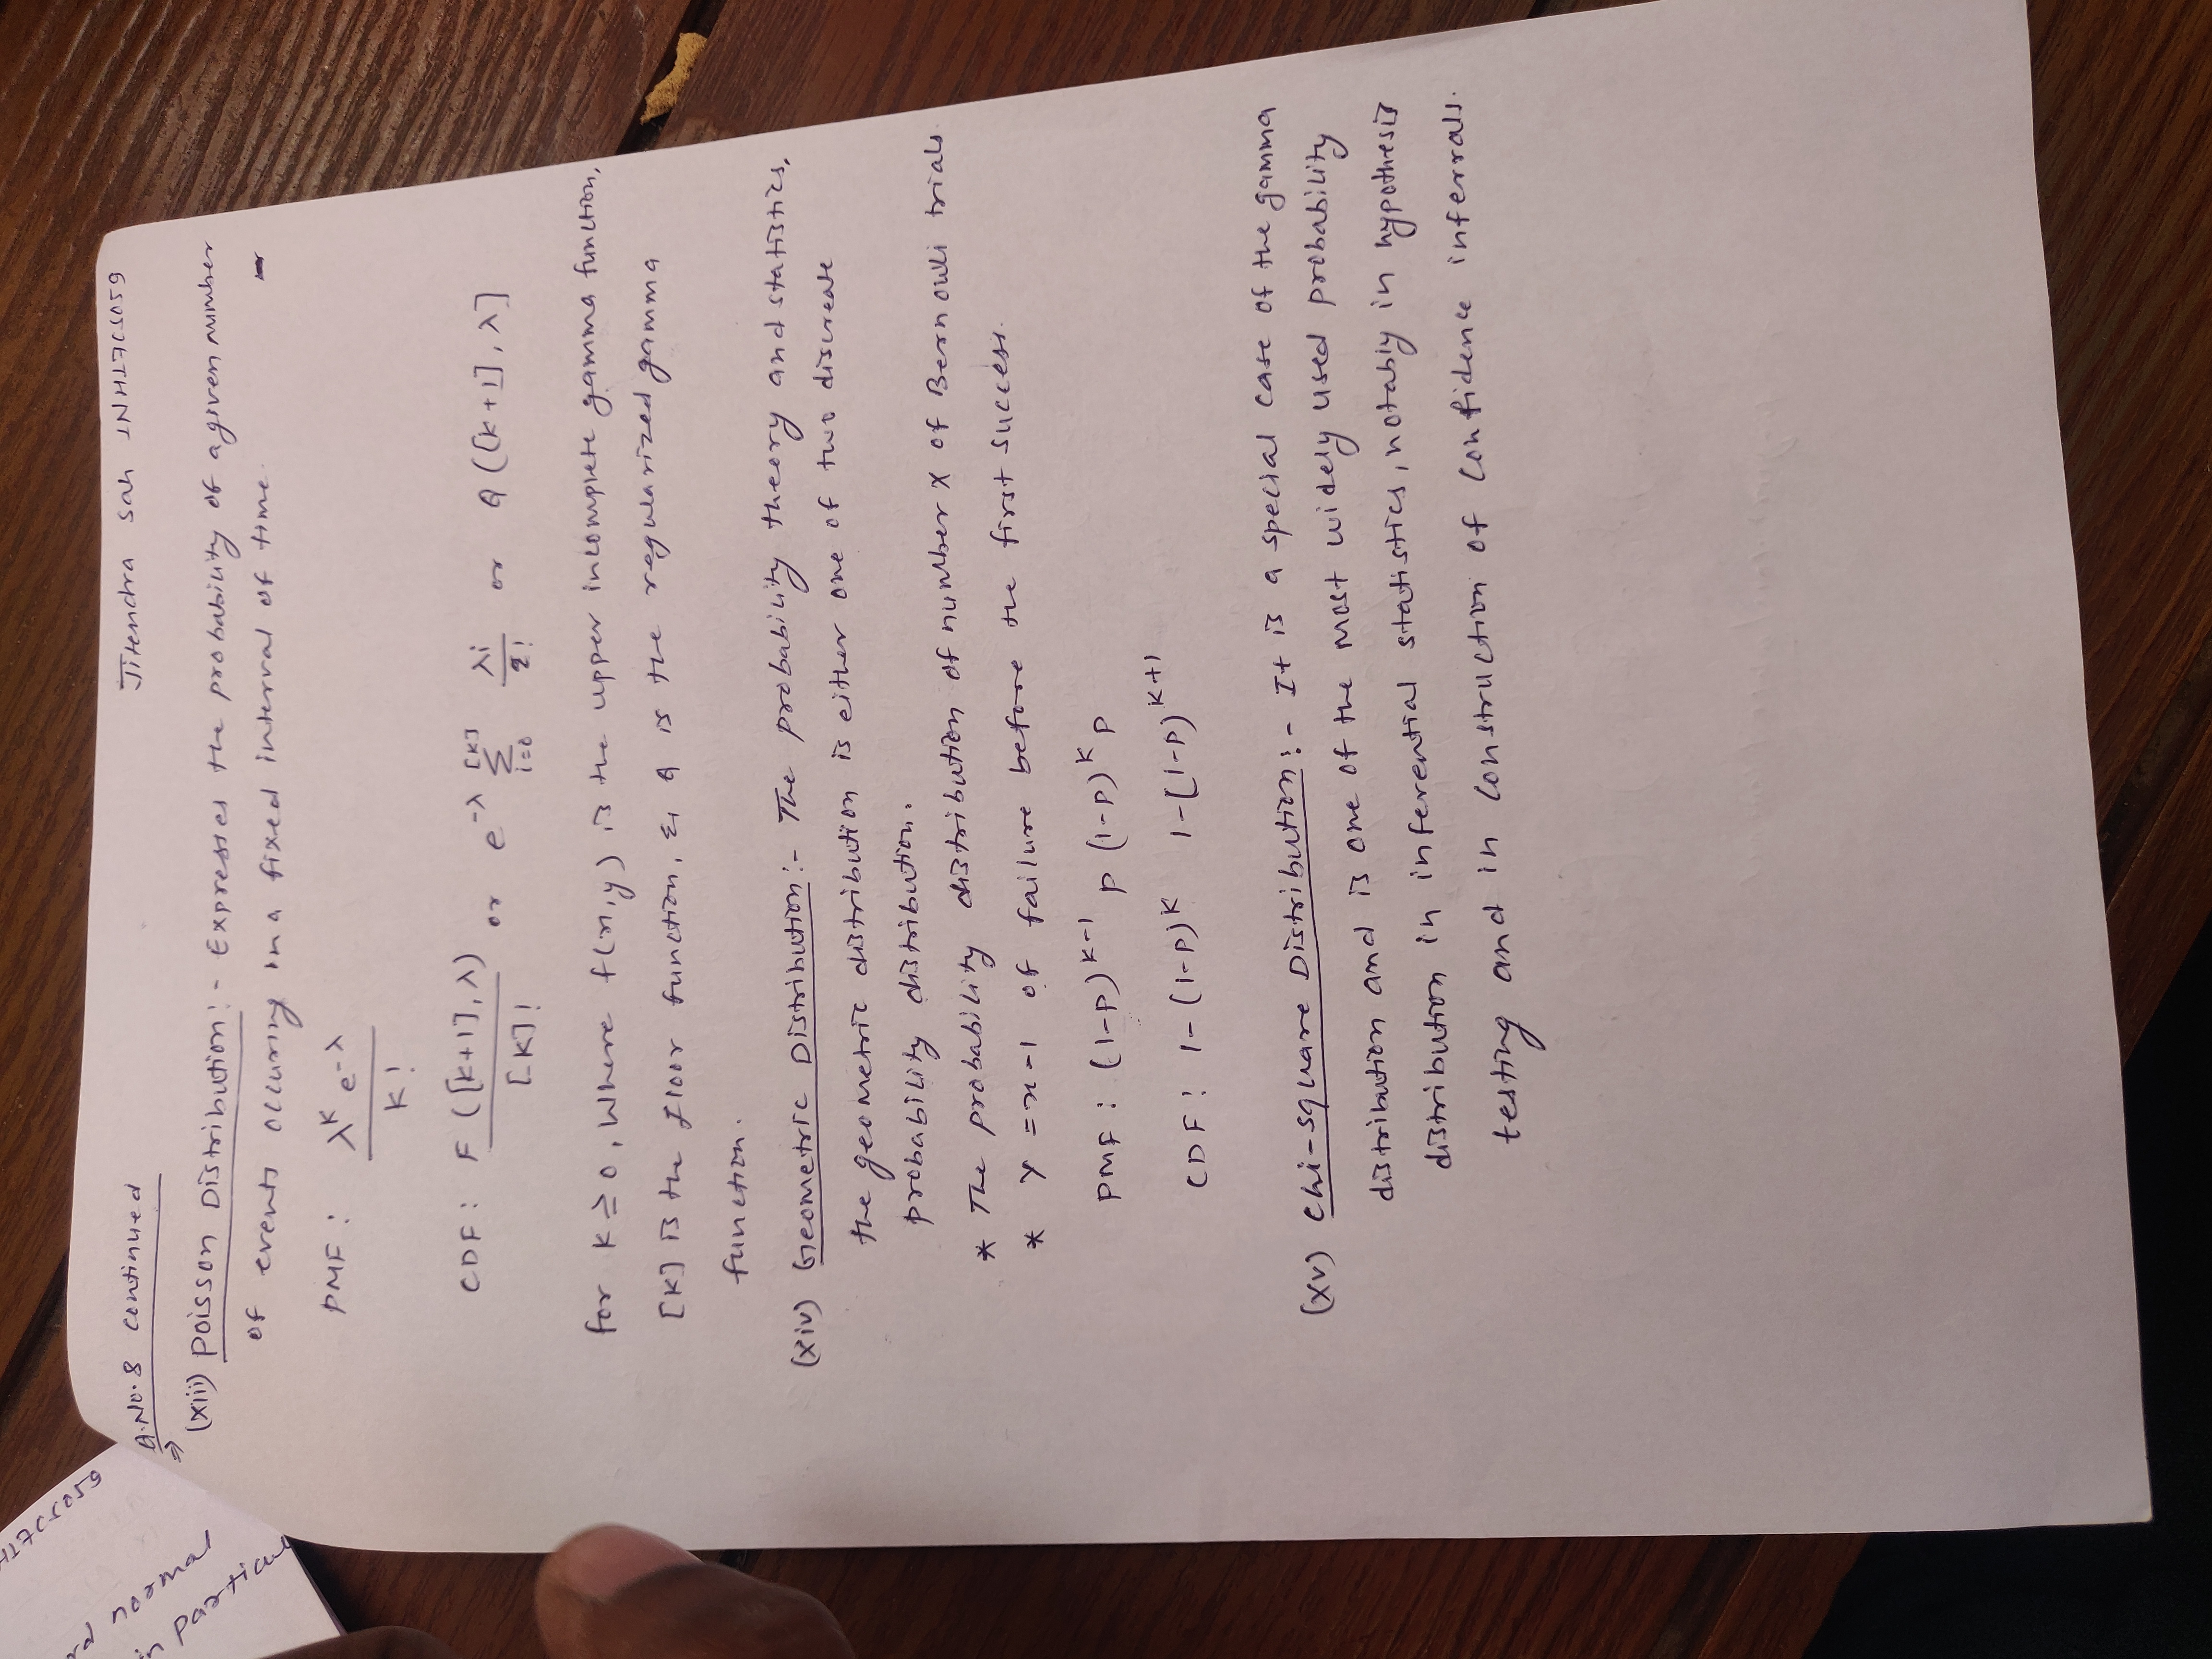 1NH17CS059
rd normal
in particul
A.No.8 continued
Jitendra Sah 1NH17CS059
⇒
(xiii) Poisson Distribution:- Expresses the probability of a given number
of events occuring in a fixed interval of time.
PMF: λ^k e^-λ / k!
CDF: F([k+1], λ) / [k]! or e^-λ [k] Σ i=0 λi / 2! or Q([k+1], λ]
for k ≥ 0, Where f(x,y) is the upper incomplete gamma function,
[k] is the floor function, & Q is the regularized gamma
function.
(xiv) Geometric Distribution:- The probability theory and statistics,
the geometric distribution is either one of two discreate
probability distribution.
* The probability distribution of number X of Bernouli trials
* Y = x-1 of failure before the first success.
PMF: (1-p)^k-1 p (1-p)^k p
CDF: 1-(1-p)^k 1-(1-p)^k+1
(xv) Chi-square Distribution:- It is a special case of the gamma
distribution and is one of the most widely used probability
distribution in inferential statistics, notably in hypothesis
testing and in construction of confidence inferrals.